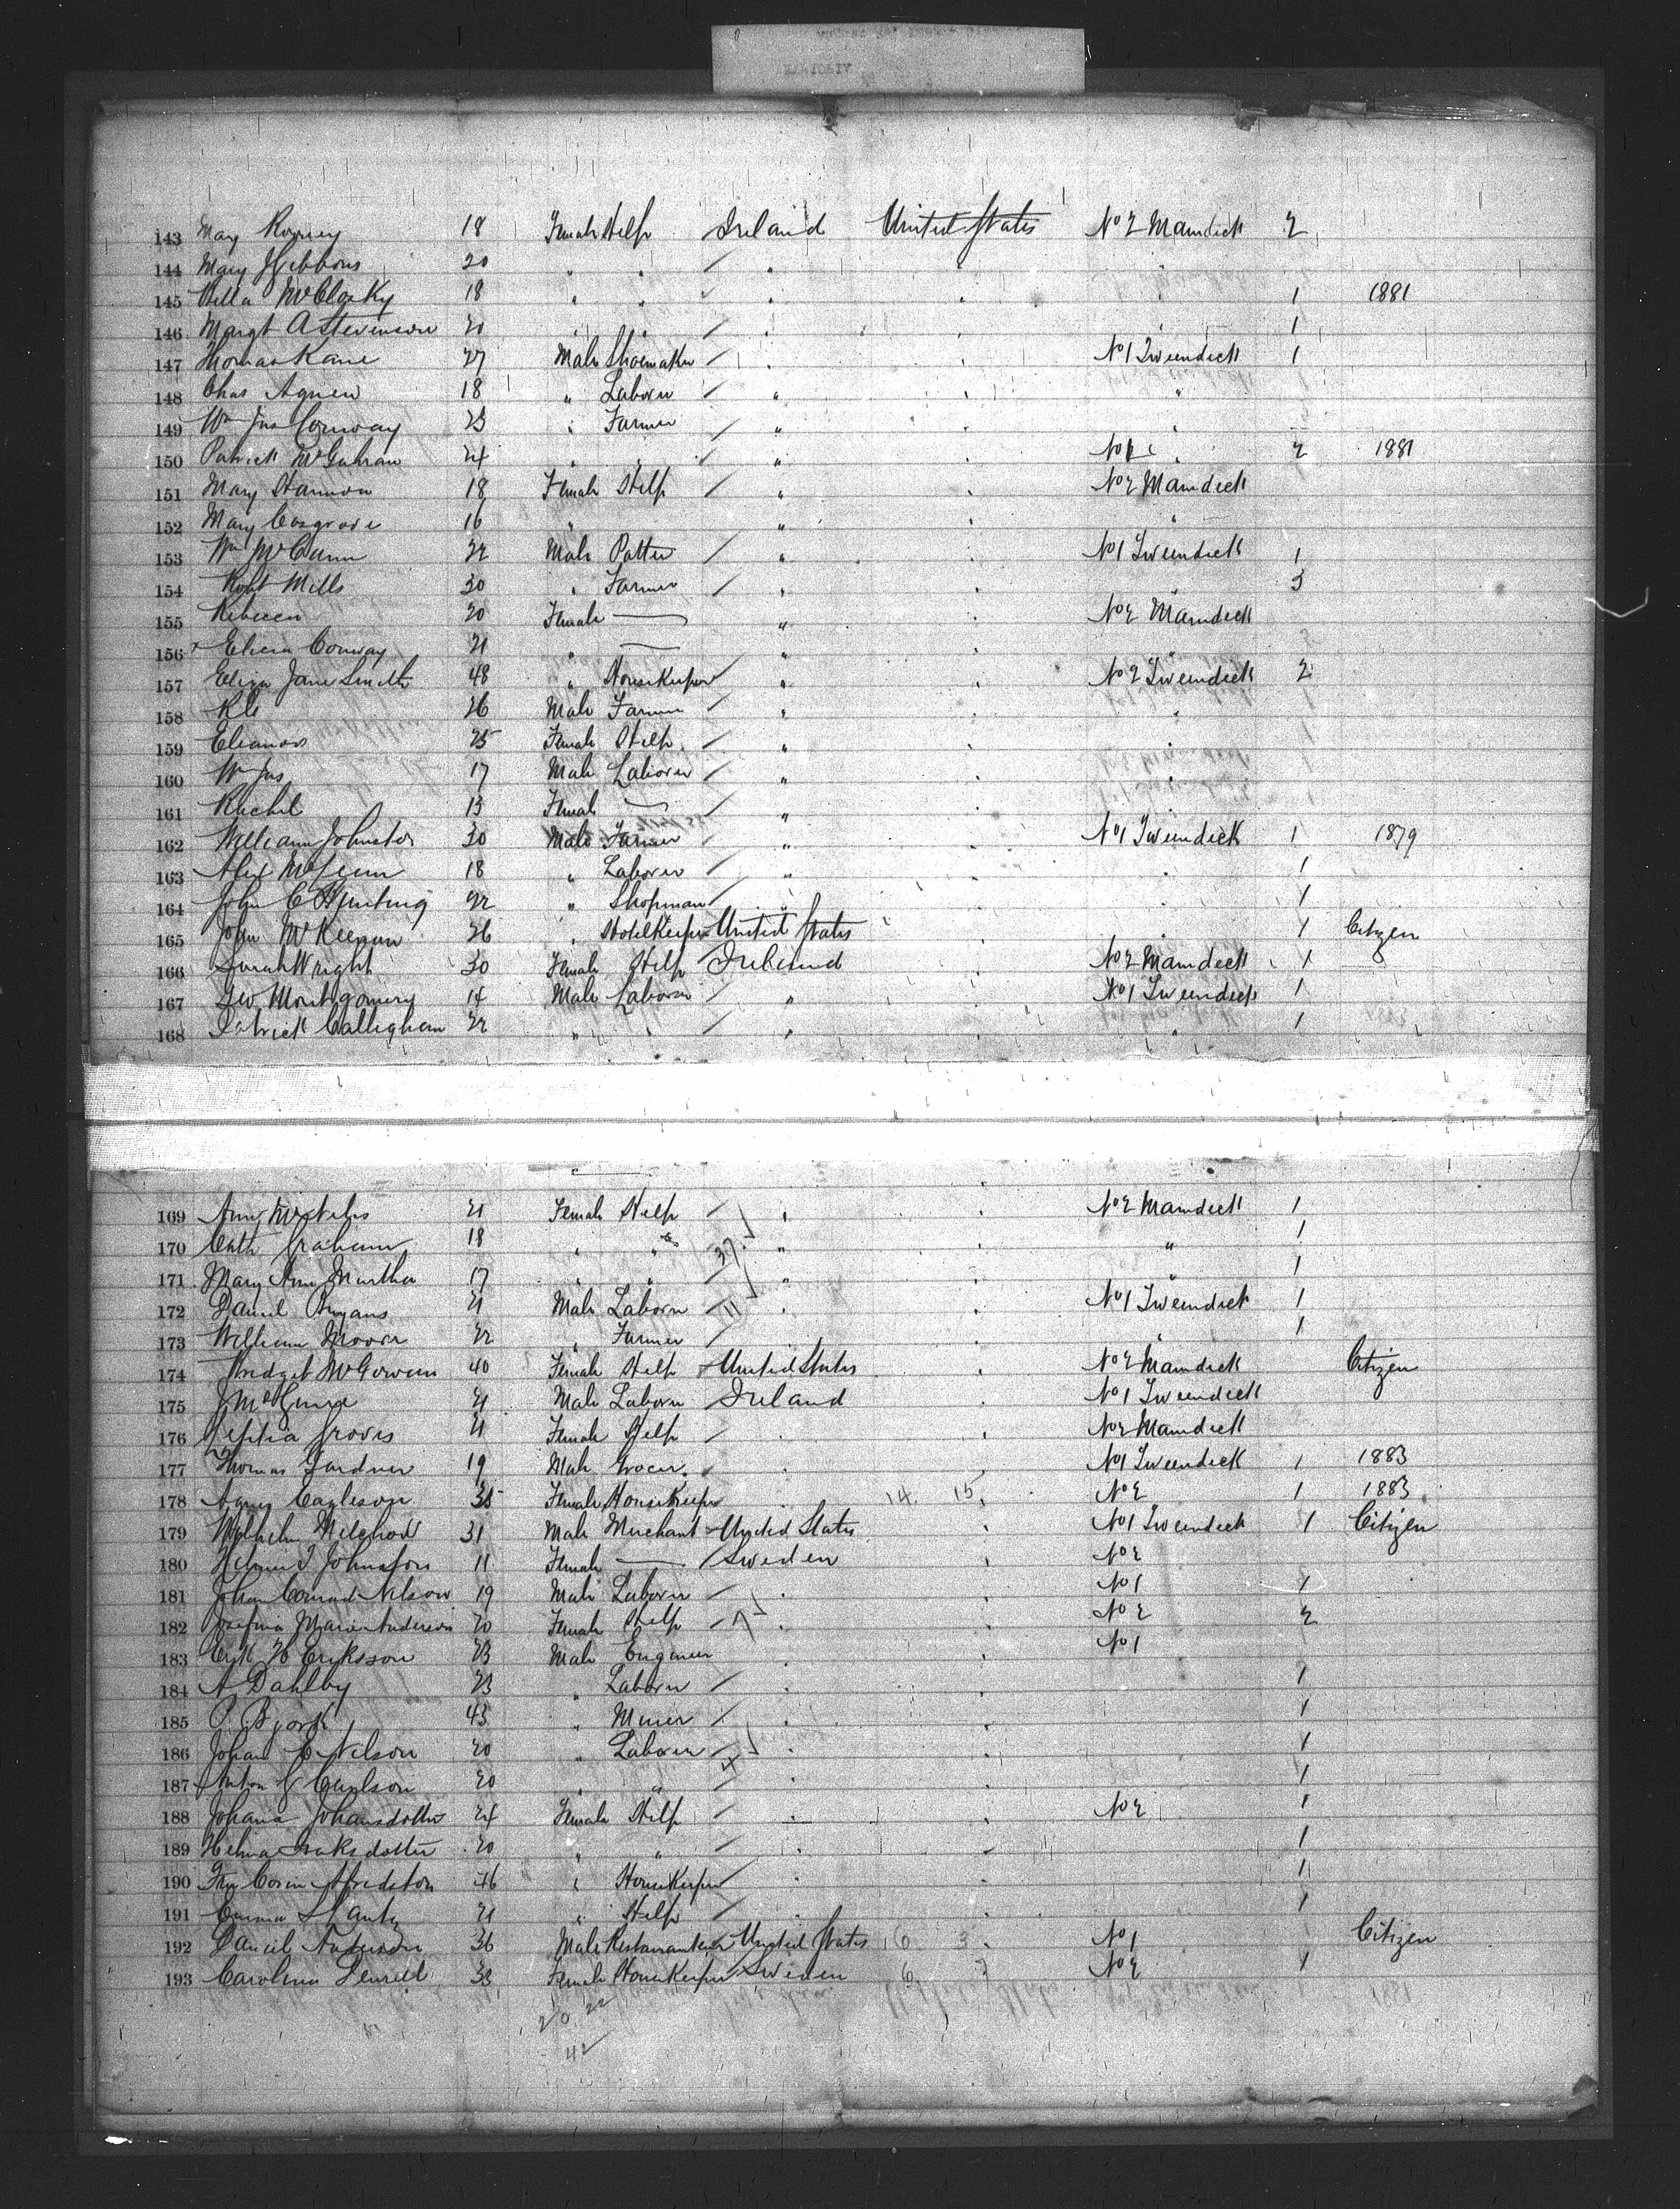 143 Mary Rooney 18 Female Help Ireland United States No 2 Maindeck 2
144 Mary Gibbons 20 " " "
145 Bella McClosky 18 " " " " 1 1881
146 Margt A Stevenson 20 " " " " 1
147 Thomas Kane 27 Male Shoemaker " " No 1 Tweendeck 1
148 Chas Agnew 18 " Laborer " " "
149 Wm Jas Conway 23 " Farmer " " "
150 Patrick McGahran 24 " " " " No 1 " 2 1881
151 Mary Hannon 18 Female Help " " No 2 Maindeck
152 Mary Cosgrove 16 " " " "
153 Wm McCann 22 Male Potter " " No 1 Tweendeck 1
154 Robt Mills 30 " Farmer " " 3
155 Rebecca 20 Female — " No 2 Maindeck
156 Eliza Conway 21 " — " " "
157 Eliza Jane Smith 48 " Housekeeper " " No 2 Tweendeck 2
158 26 Male Farmer " " "
159 Eleanor 25 Female Help " " "
160 Wm Jas 17 Male Laborer " " "
161 Rachel 13 Female — "
162 William Johnston 30 Male Farmer " " No 1 Tweendeck 1 1879
163 Alex 18 " Laborer " " " 1
164 John C Hunting 22 " Shopman " " " 1
165 John McKeenan 26 " Hotelkeeper United States " " 1 Citizen
166 Sarah Wright 30 Female Help Ireland " No 2 Maindeck 1
167 Geo Montgomery 14 Male Laborer " " No 1 Tweendeck 1
168 Patrick Calligham 22 " " " " " 1
169 Ann 21 Female Help " " No 2 Maindeck 1
170 Cath Graham 18 " " " " " 1
171 Mary Ann Murtha 17 " " " " " 1
172 Daniel Bryans 21 Male Laborer " " No 1 Tweendeck 1
173 William Moore 22 " Farmer " " 1
174 Bridget McGowan 40 Female Help United States " No 2 Maindeck Citizen
175 J McGuire 21 Male Laborer Ireland " No 1 Tweendeck
176 Groves 21 Female Help " " No 2 Maindeck
177 Thomas Gardner 19 Male Grocer " " No 1 Tweendeck 1 1883
178 Agnes Eagleson 35 Female Housekeeper 14 15 No 2 1 1883
179 Wilhelm 31 Male Merchant United States " No 1 Tweendeck 1 Citizen
180 Johnston 11 Female — Sweden " No 2
181 Johan Conrad Nilson 19 Male Laborer " " No 1 1
182 Josefina Maria Anderson 20 Female Help " " No 2 2
183 Erik Eriksson 23 Male Engineer " " No 1
184 A Dahlby 23 " Laborer " " 1
185 P. Bjork 43 " Miner " " 1
186 Johan E Nelson 20 " Laborer " " 1
187 Anton G Carlson 20 " " " " 1
188 Johana Johansdotter 24 Female Help " " No 2 1
189 Helina Isaksdotter 20 " " " " 1
190 46 " Housekeeper " " 1
191 Emma 21 " Help " " 1
192 Daniel Anderson 36 Male United States 6 3 No 1 Citizen
193 Carolina 33 Female Housekeeper Sweden 6 7 No 2 1
20 22
42